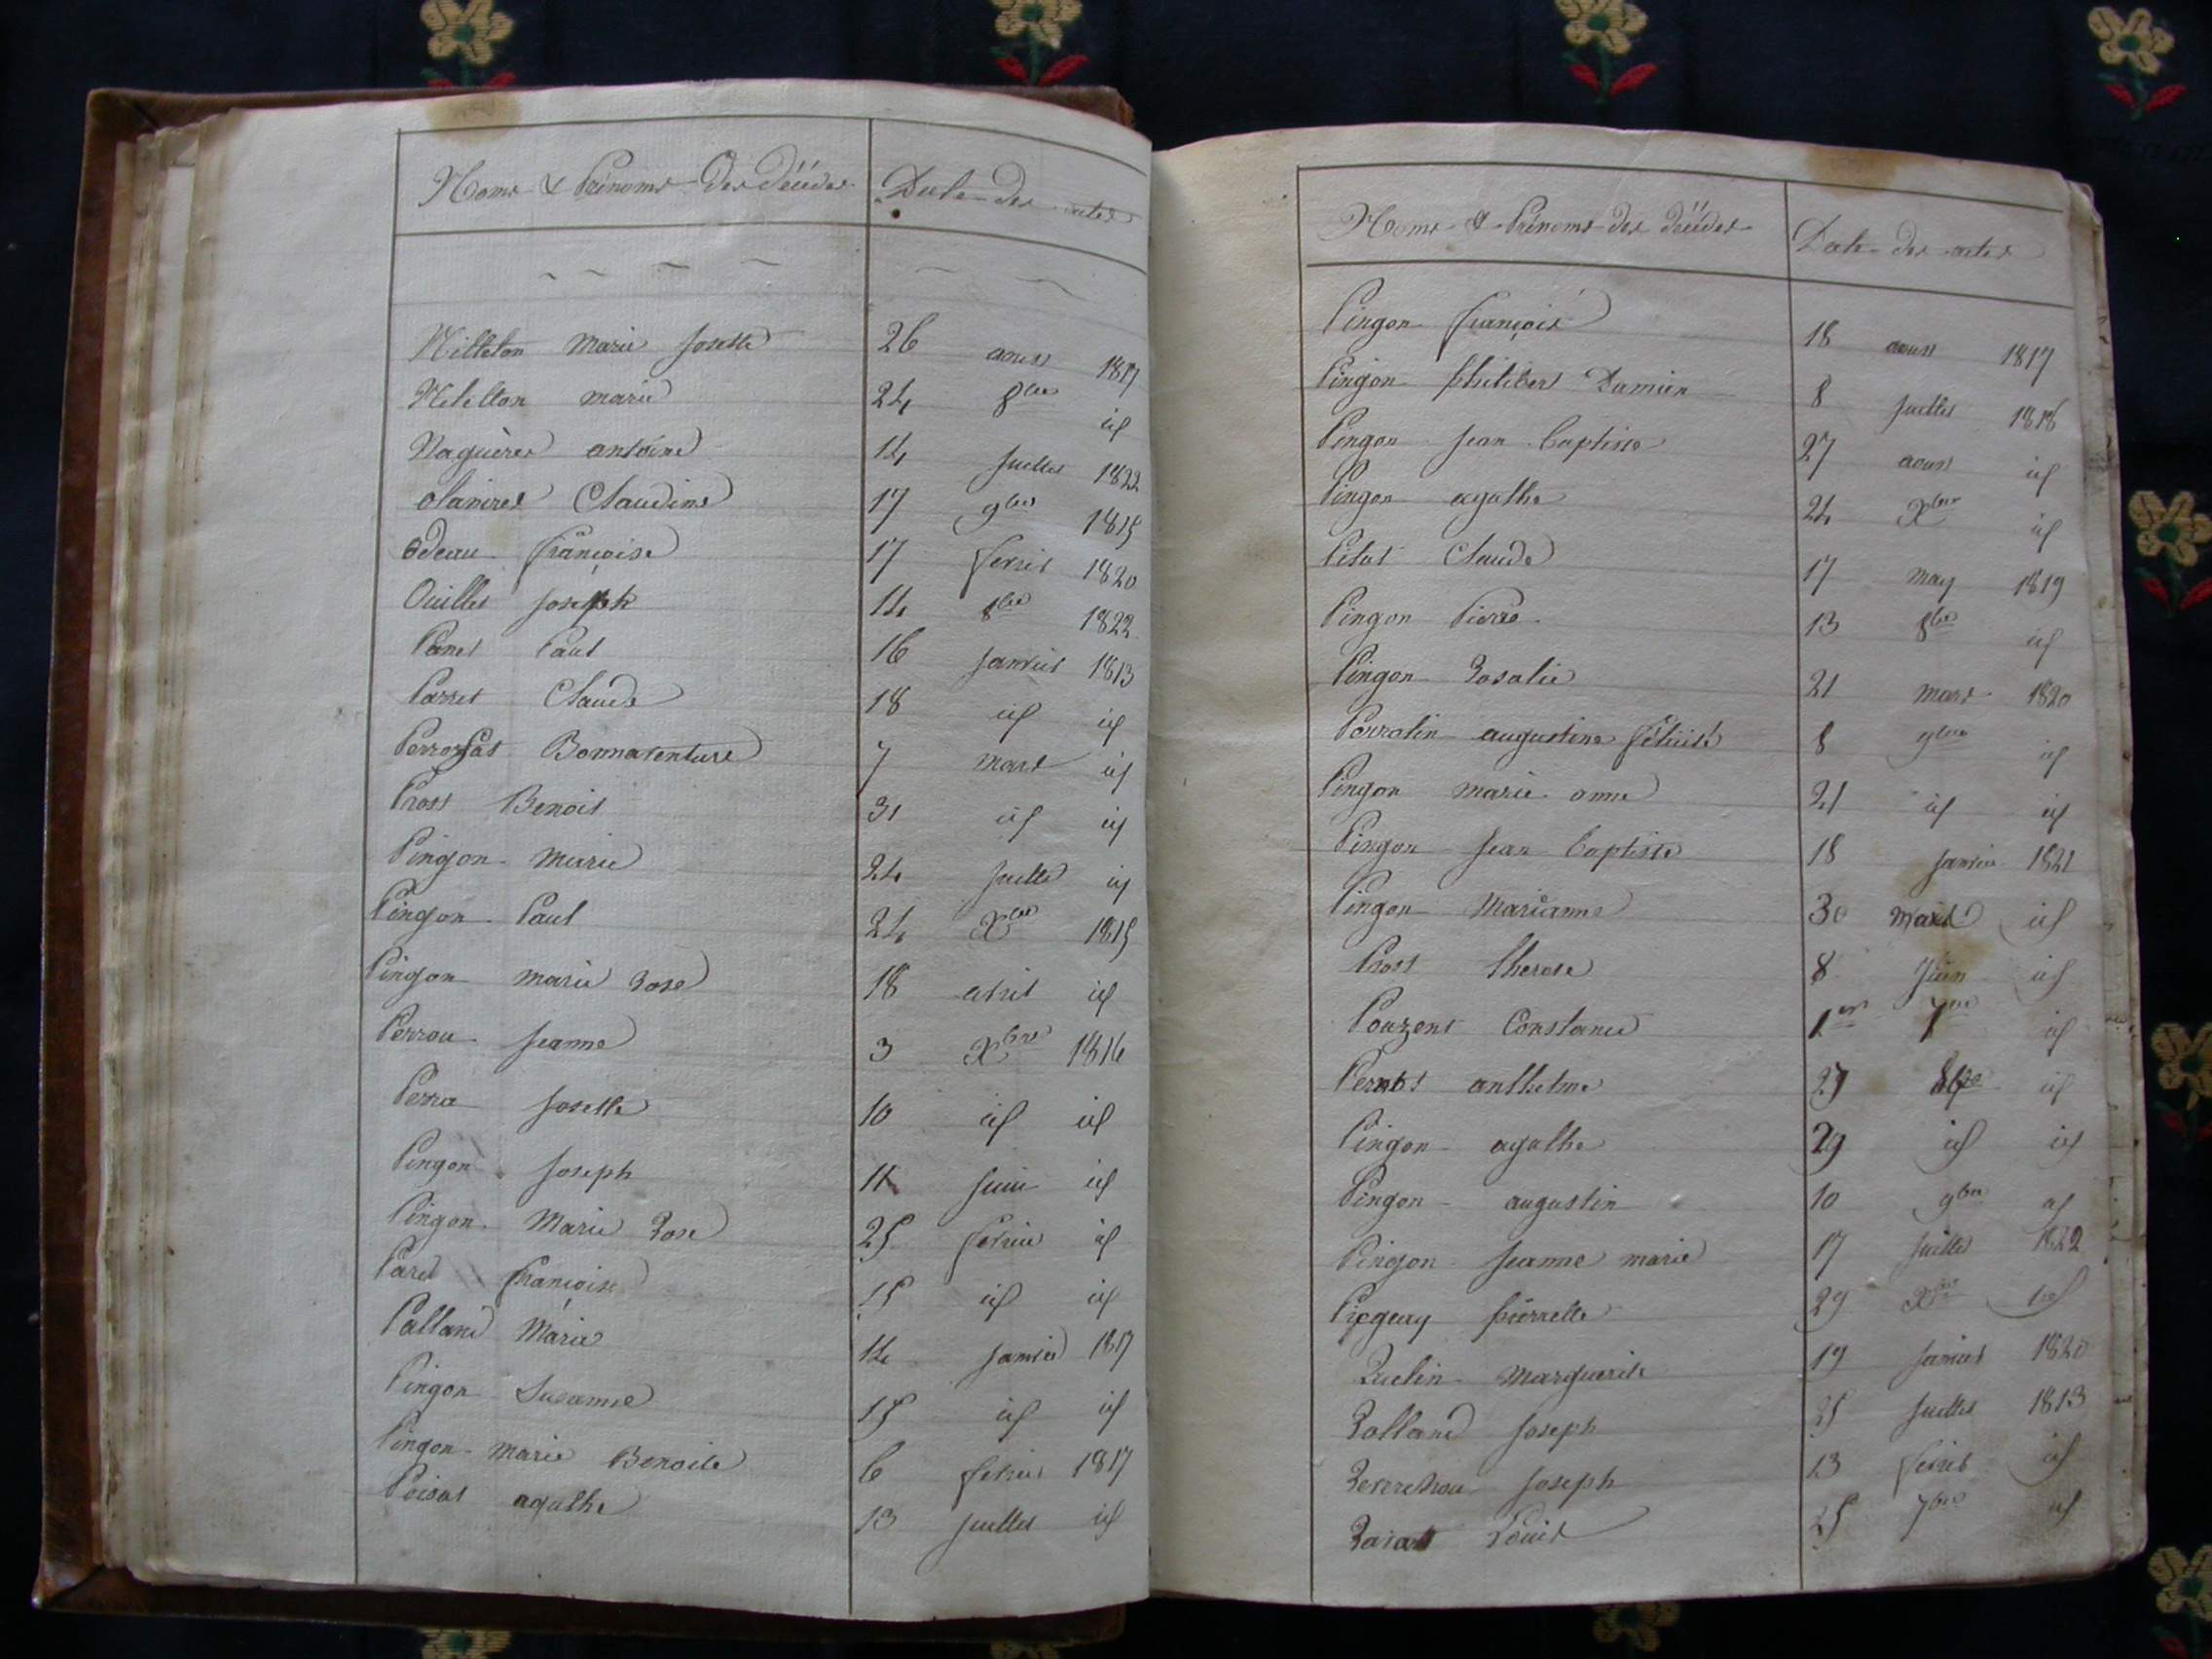 Noms & Prénoms des décédés Date des actes
Milleton marie Josette 26 aoust 1817
Melleton marie 24 8bre id
Naguères antoine 14 Juillet 1822
Claudine 17 9bre 1815
odeau françoise 17 fevrier 1820
Ouillet Joseph 14 8bre 1822
Panet Paul 16 Janvier 1813
Parret Claude 18 id id
Bonnaventure 7 mars id
Prost Benoit 31 id id
Pingon marie 24 Juillet id
Pingon Paul 24 Xbre 1815
Pingon marie Rose 18 avril id
Perrou Jeanne 3 Xbre 1816
Perra Josette 10 id id
Pingon Joseph 11 Juin id
Pingon Marie Rose 25 fevrier id
Paret françoise 15 id id
Palland Marie 14 Janvier 1817
Pingon Susanne 15 id id
Pingon marie Benoite 6 fevrier 1817
Poisat agathe 13 Juillet id
Noms & Prénoms des décédés Date des actes
Pingon françois 18 aoust 1817
Pingon philibert Damien 8 Juillet 1818
Pingon Jean Baptiste 27 aoust id
Pingon agathe 24 Xbre id
Pitat Claude 17 may 1819
Pingon Pierre 13 8bre id
Pingon Rosalie 21 mars 1820
augustine félicité 8 9bre id
Pingon marie anne 21 id id
Pingon Jean Baptiste 18 Janvier 1821
Pingon Marianne 30 Mars id
Prost therese 8 Juin id
Pouzent Constance 1er 7bre id
anthelme 27 8bre id
Pingon agathe 29 id id
Pingon augustin 10 9bre id
Pingon Jeanne marie 17 Juillet 1822
pierrette 29 Xbre id
Quelin Marguerite 19 Janvier 1820
Rolland Joseph 25 Juillet 1813
Joseph 13 fevrier id
Ravat Louis 25 7bre id